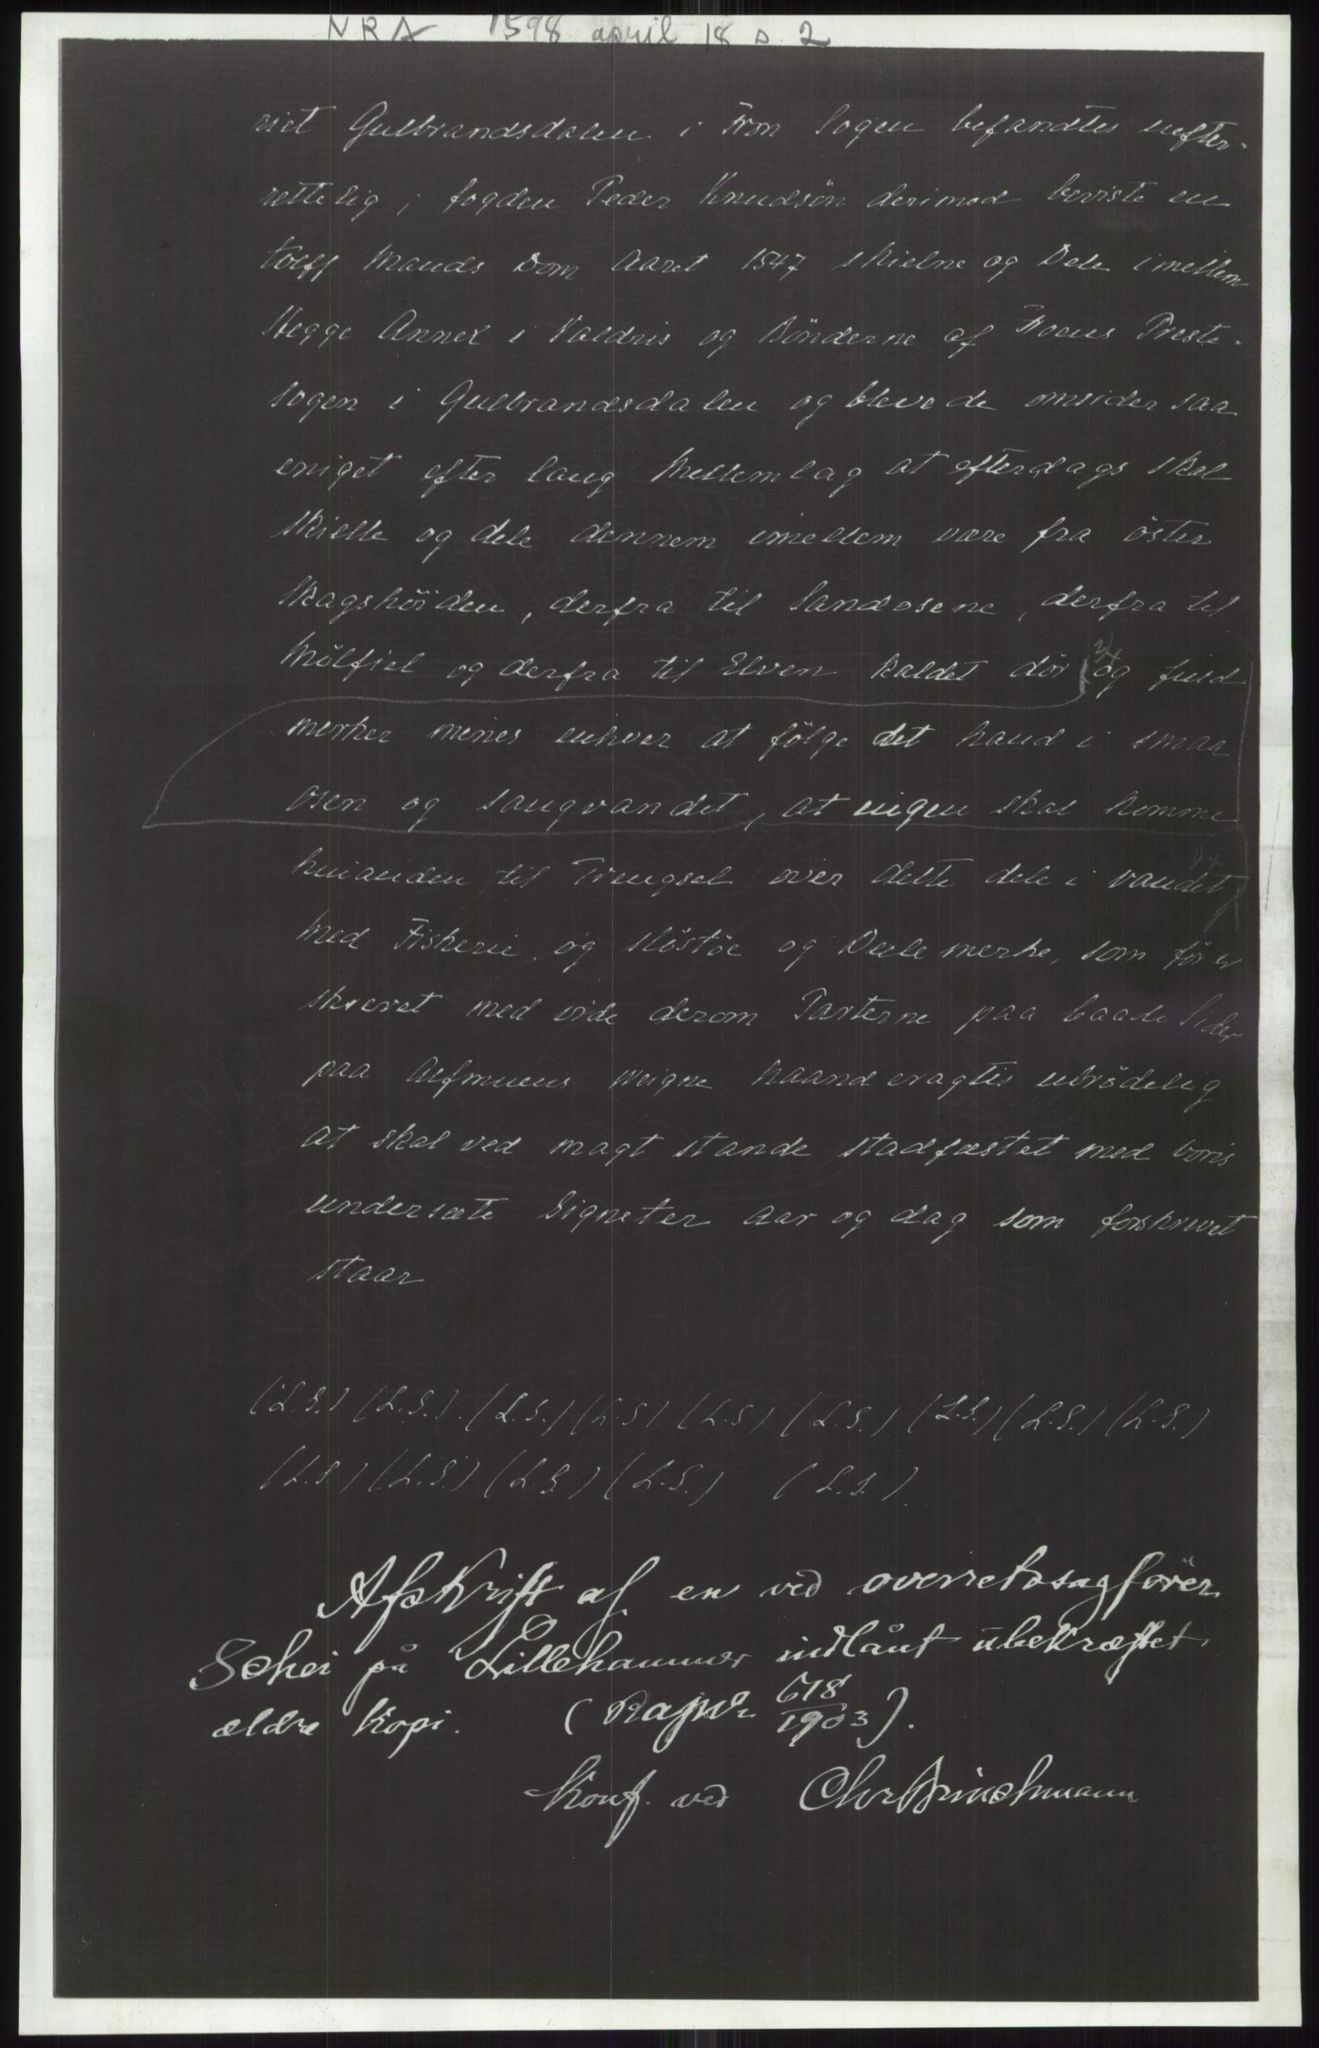 NRA 1598 april 18 s. 2
viet Gulbrandsdalen i Fron Sogen befandtes uefter-
rettelig; fogden Peder Knudsøn derimod beviste en
tolff Mands Dom Aaret 1547 skielne og Dele imellem
Hegge Annex i Valdris og Bönderne af Froens Preste-
sogen i Gulbrandsdalen og bleve de omsider saa
eniget efter lang Mellemlag at efterdags skal
skielle og dele dennem imellem være fra öster
Skagshöiden, derfra til Sandosene, derfra til
Mölfiel og derfra til Elven kaldet dör og field
merker menes enhver at fölge det hand i smaa
osen og Langvandet, at ingen skal komme
hinanden til Trengsel over dette dele i vandet
med Fiskerie og Slöstöe og Deele merke, som för er
skrevet med vide derom Parterne paa baade Sider
paa alfmuens weigne haand eragtis ubrödelig
at skal ved magt stande stadfæstet med voris
undersatte Signeter Aar og dag som forskrevet
staar
(L.S.) (L.S.). (L.S.) (L.S) (L.S) (L.S.) (L.S.) (L.S.) (L.S.)
(L.S.) (L.S.) (L.S.) (L.S.) (L.S.).
Afskrift af en ved overretssagfører
Schei på Lillehammer indlånt ubekræftet
ældre Kopi. (Rajour 618/1903).
Konf. ved Chr Brinchmann